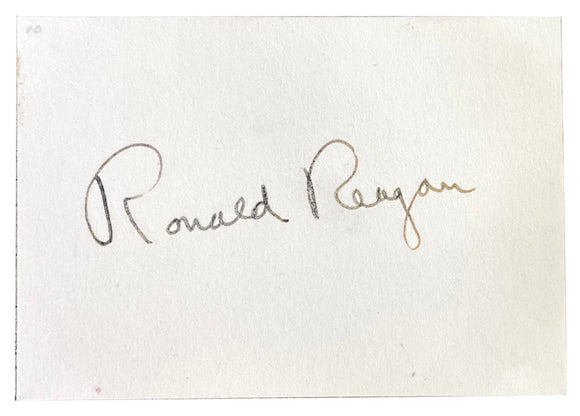 10
Ronald Reagan